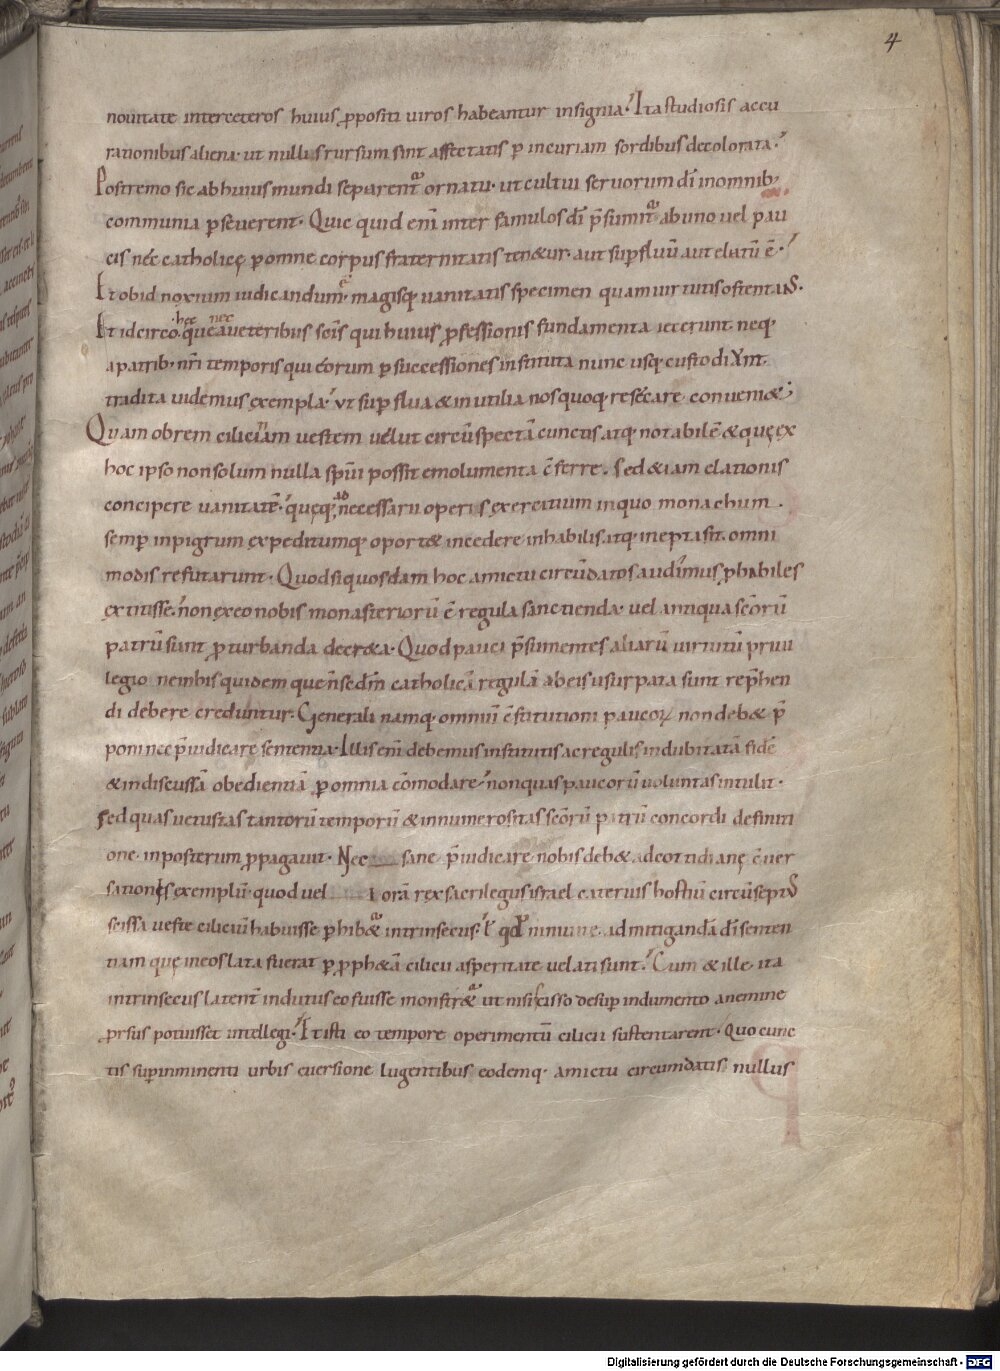 4
nouitate inter ceteros huius ꝓpositi uiros habeantur insignia. Ita studiosis accu
rationibus aliena. ut nullis rursum sint affectatis ꝑ incuriam sordibus decolorata.
Postremo sic ab huius mundi separentur ornatu. ut cultui seruorum dī in omnib;
communia ꝑseuerent. Quicquid enī inter famulos dī p̄sumitur ab uno uel pau
cis nec catholicę ꝑ omne corpus fraternitatis tenetur. aut suꝑfluū aut elatū ē.
Et ob id noxium iudicandum. magisq; uanitatis specimen quam uirtutis ostentans.
Et idcirco hęc quę nec a ueteribus scīs qui huius ꝓfessionis fundamenta iecerunt neq;
a patrib; nrī temporis qui eorum ꝑ successiones instituta nunc usq; custodiunt.
tradita uidemus exempla. ut suꝑflua & inutilia nos quoq; resecare conuenit;
Quam obrem cilicinam uestem uelut circūspectā cunctis atq; notabilē & quę ex
hoc ipso non solum nulla spūi possit emolumenta cōferre. Sed & iam elationis
concipere uanitatē. queq; ad necessarii operis exercitium in quo monachum
semꝑ inpigrum expeditumq; oportet incedere inhabilis atq; inepta sit. omni
modis refutarunt. Quod si quosdam hoc amictu circūdatos audiuimus ꝓbabiles
extitisse. non ex eo nobis monasteriorū ē regula sanctienda. uel antiqua scōrū
patrū sunt ꝑturbanda decreta. Quod pauci p̄sumentes aliarū uirtutū priui
legio ne in his quidem que n̄ sedm̄ catholicā regulā ab eis usurpata sunt rep̄hen
di debere creduntur. Generali namq; omniū cōstitutioni paucoꝝ non debet p̄
poni nec p̄iudicare sententia. Illis enī debemus institutis ac regulis indubitatā fidē
& indiscussā obedientiā ꝑ omnia cōmodare. non quas paucorū uoluntas intulit.
sed quas uetustas tantorū temporū & innumerositas scōrū patrū concordi definiti
one. in posterum ꝓpagauit. Nec sane p̄iudicare nobis debet ad cottidianę cōuer
sationis exemplū. quod uel ioram rex sacrilegus israel cateruis hostiū circūseptus
scissa ueste ciliciū habuisse ꝑhibetur intrinsecus. uel quod niniuite. ad mitigandā dī senten
tiam quę in eos lata fuerat ꝑ ꝓph&ā cilicii asperitate uelati sunt. Cum & ille ita
intrinsecus latenter indutus eo fuisse monstretur ut nisi scisso desuꝑ indumento a nemine
prorsus potuisset intellegi. Et isti eo tempore operimentū cilicii sustentarent. Quo cunc
tis suꝑ inminenti urbis euersione lugentibus eodemq; amictu circumdatis. nullus
Digitalisierung gefördert durch die Deutsche Forschungsgemeinschaft - DFG